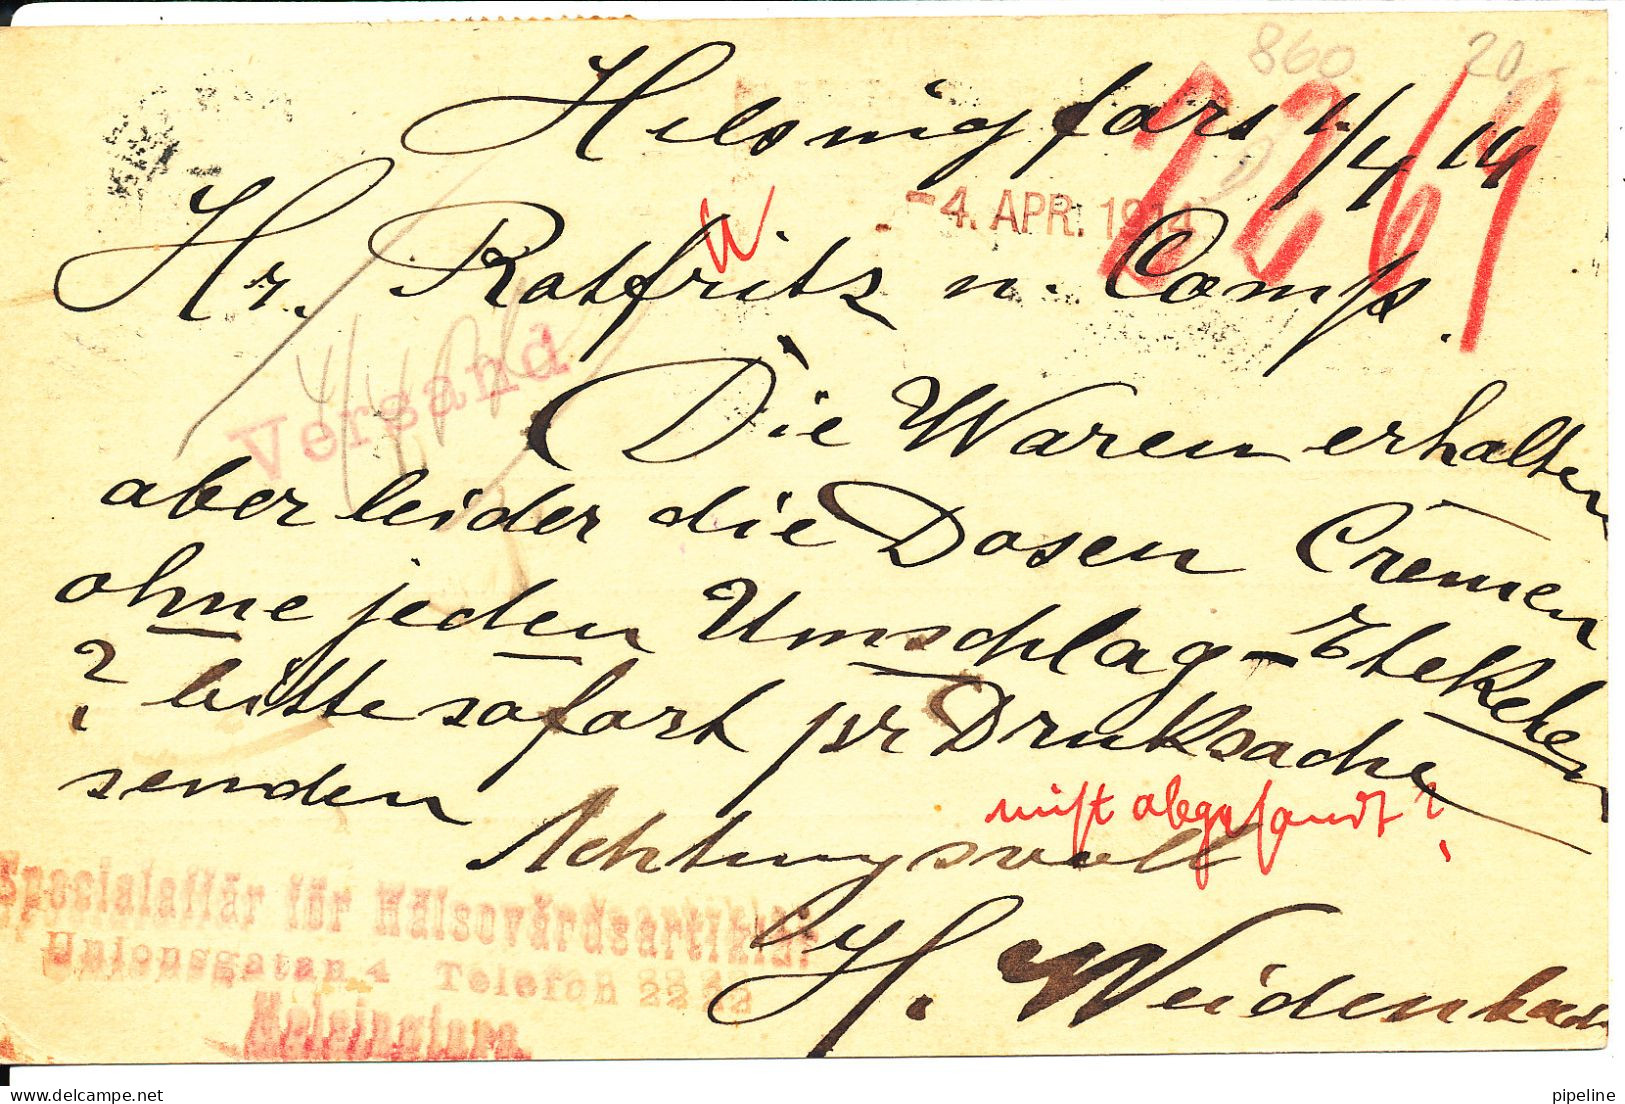 860 20
Helsingfors 1/4 14
2269
- 4. APR. 1914
Hr. Rotfritz u. Comp.
Versand
Die Waren erhalten
aber leider die Dosen Cremen
ohne jeden Umschlag - Eteketen
? bitte sofort pr Drucksache
senden
abgesandt?
Achtungsvoll
H. Weidenbach
Specialaffär för Hälsovårdsartiklar
Unionsgatan 4 Telefon
Helsingfors
pipeline